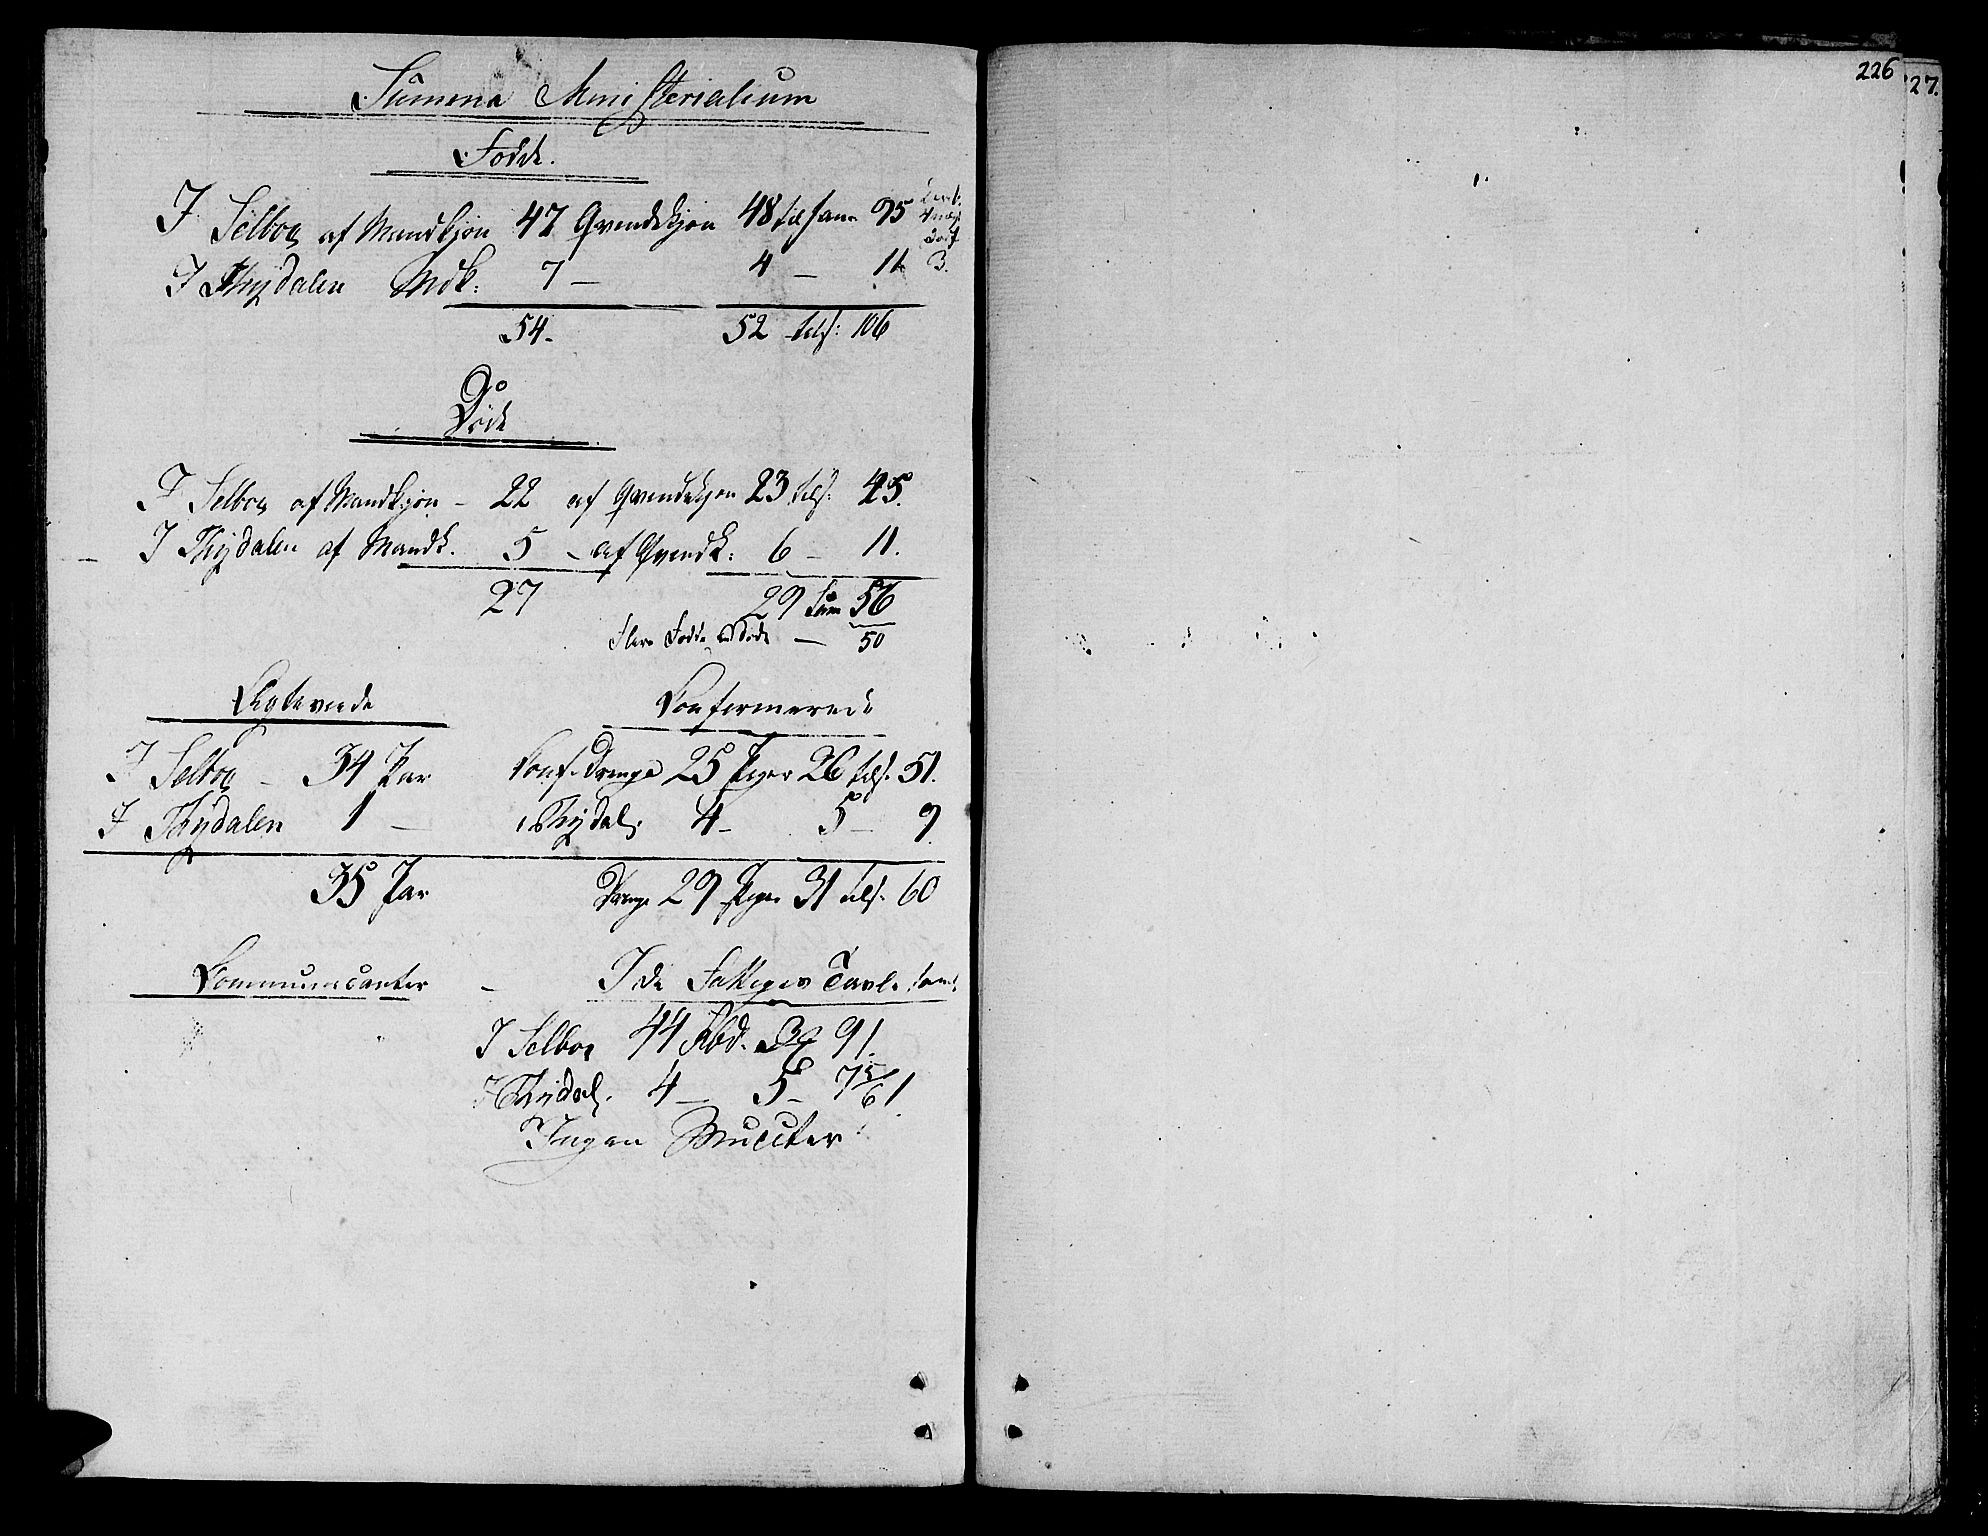 Summa Ministerialium
Fødde.
I Selboe af Mandkjøn 47 Qvindekjøn 48 tilsam 95
I Thydalen Mdk: 7 — 4 — 11 3.
54. 52 tils: 106
Døde
I Selboe af Mandkjøn - 22 af Qvindekjøn 23 tils: 45.
I Thydalen af Mandk. 5 - af Qvindk: 6 - 11.
27 29 Sum 56
Flere Fødde end døde — 50
Egteviede
Confirmerede
I Selboe - 34 Par
Conf. Drenge 25 Piger 26 tils. 51.
I Thydalen 1 —
i Thydal: 4 - 5 - 9.
35 Par
Drenge 29 Piger 31 tils. 60
Communicanter -
I de Fattiges Tavle
I Selboe 44 Rbd. 3 91.
I Thydal. 4 - 5 - 7 5/6 1
Ingen Mulcter
226
27.